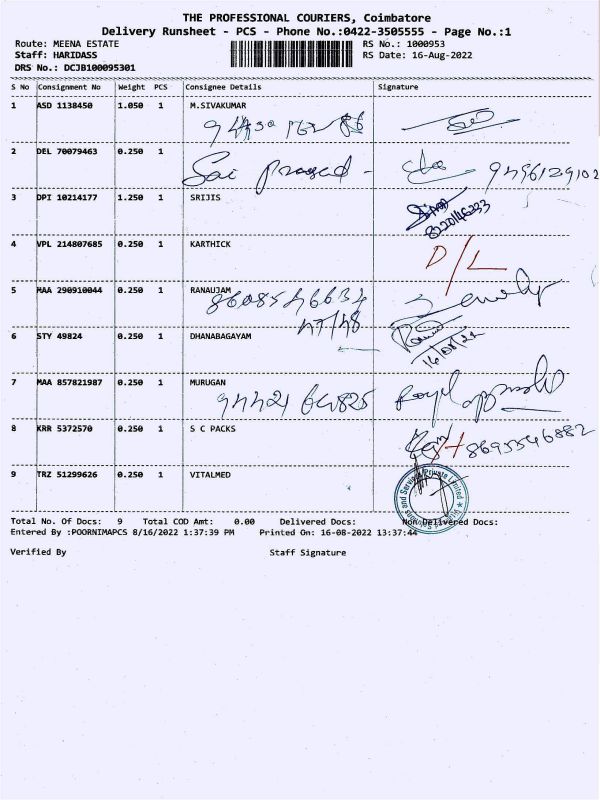 THE PROFESSIONAL COURIERS, Coimbatore
Delivery Runsheet - PCS - Phone No.:0422-3505555 - Page No.:1
Route: MEENA ESTATE RS No.: 1000953
Staff: HARIDASS RS Date: 16-Aug-2022
DRS No.: DCJB100095301
S No Consignment No Weight PCS Consignee Details Signature
1 ASD 1138450 1.050 1 M.SIVAKUMAR
2 DEL 70079463 0.250 1
Sai Prasad -
3 DPI 10214177 1.250 1 SRIJIS
4 VPL 214807685 0.250 1 KARTHICK
D/L
5 MAA 290910044 0.250 1 RANAUJAM
6 STY 49824 0.250 1 DHANABAGAYAM
16/08/22
7 MAA 857821987 0.250 1 MURUGAN
8 KRR 5372570 0.250 1 S C PACKS
9 TRZ 51299626 0.250 1 VITALMED
Total No. Of Docs: 9 Total COD Amt: 0.00 Delivered Docs: Non Delivered Docs:
Entered By :POORNIMAPCS 8/16/2022 1:37:39 PM Printed On: 16-08-2022 13:37:44
Verified By Staff Signature